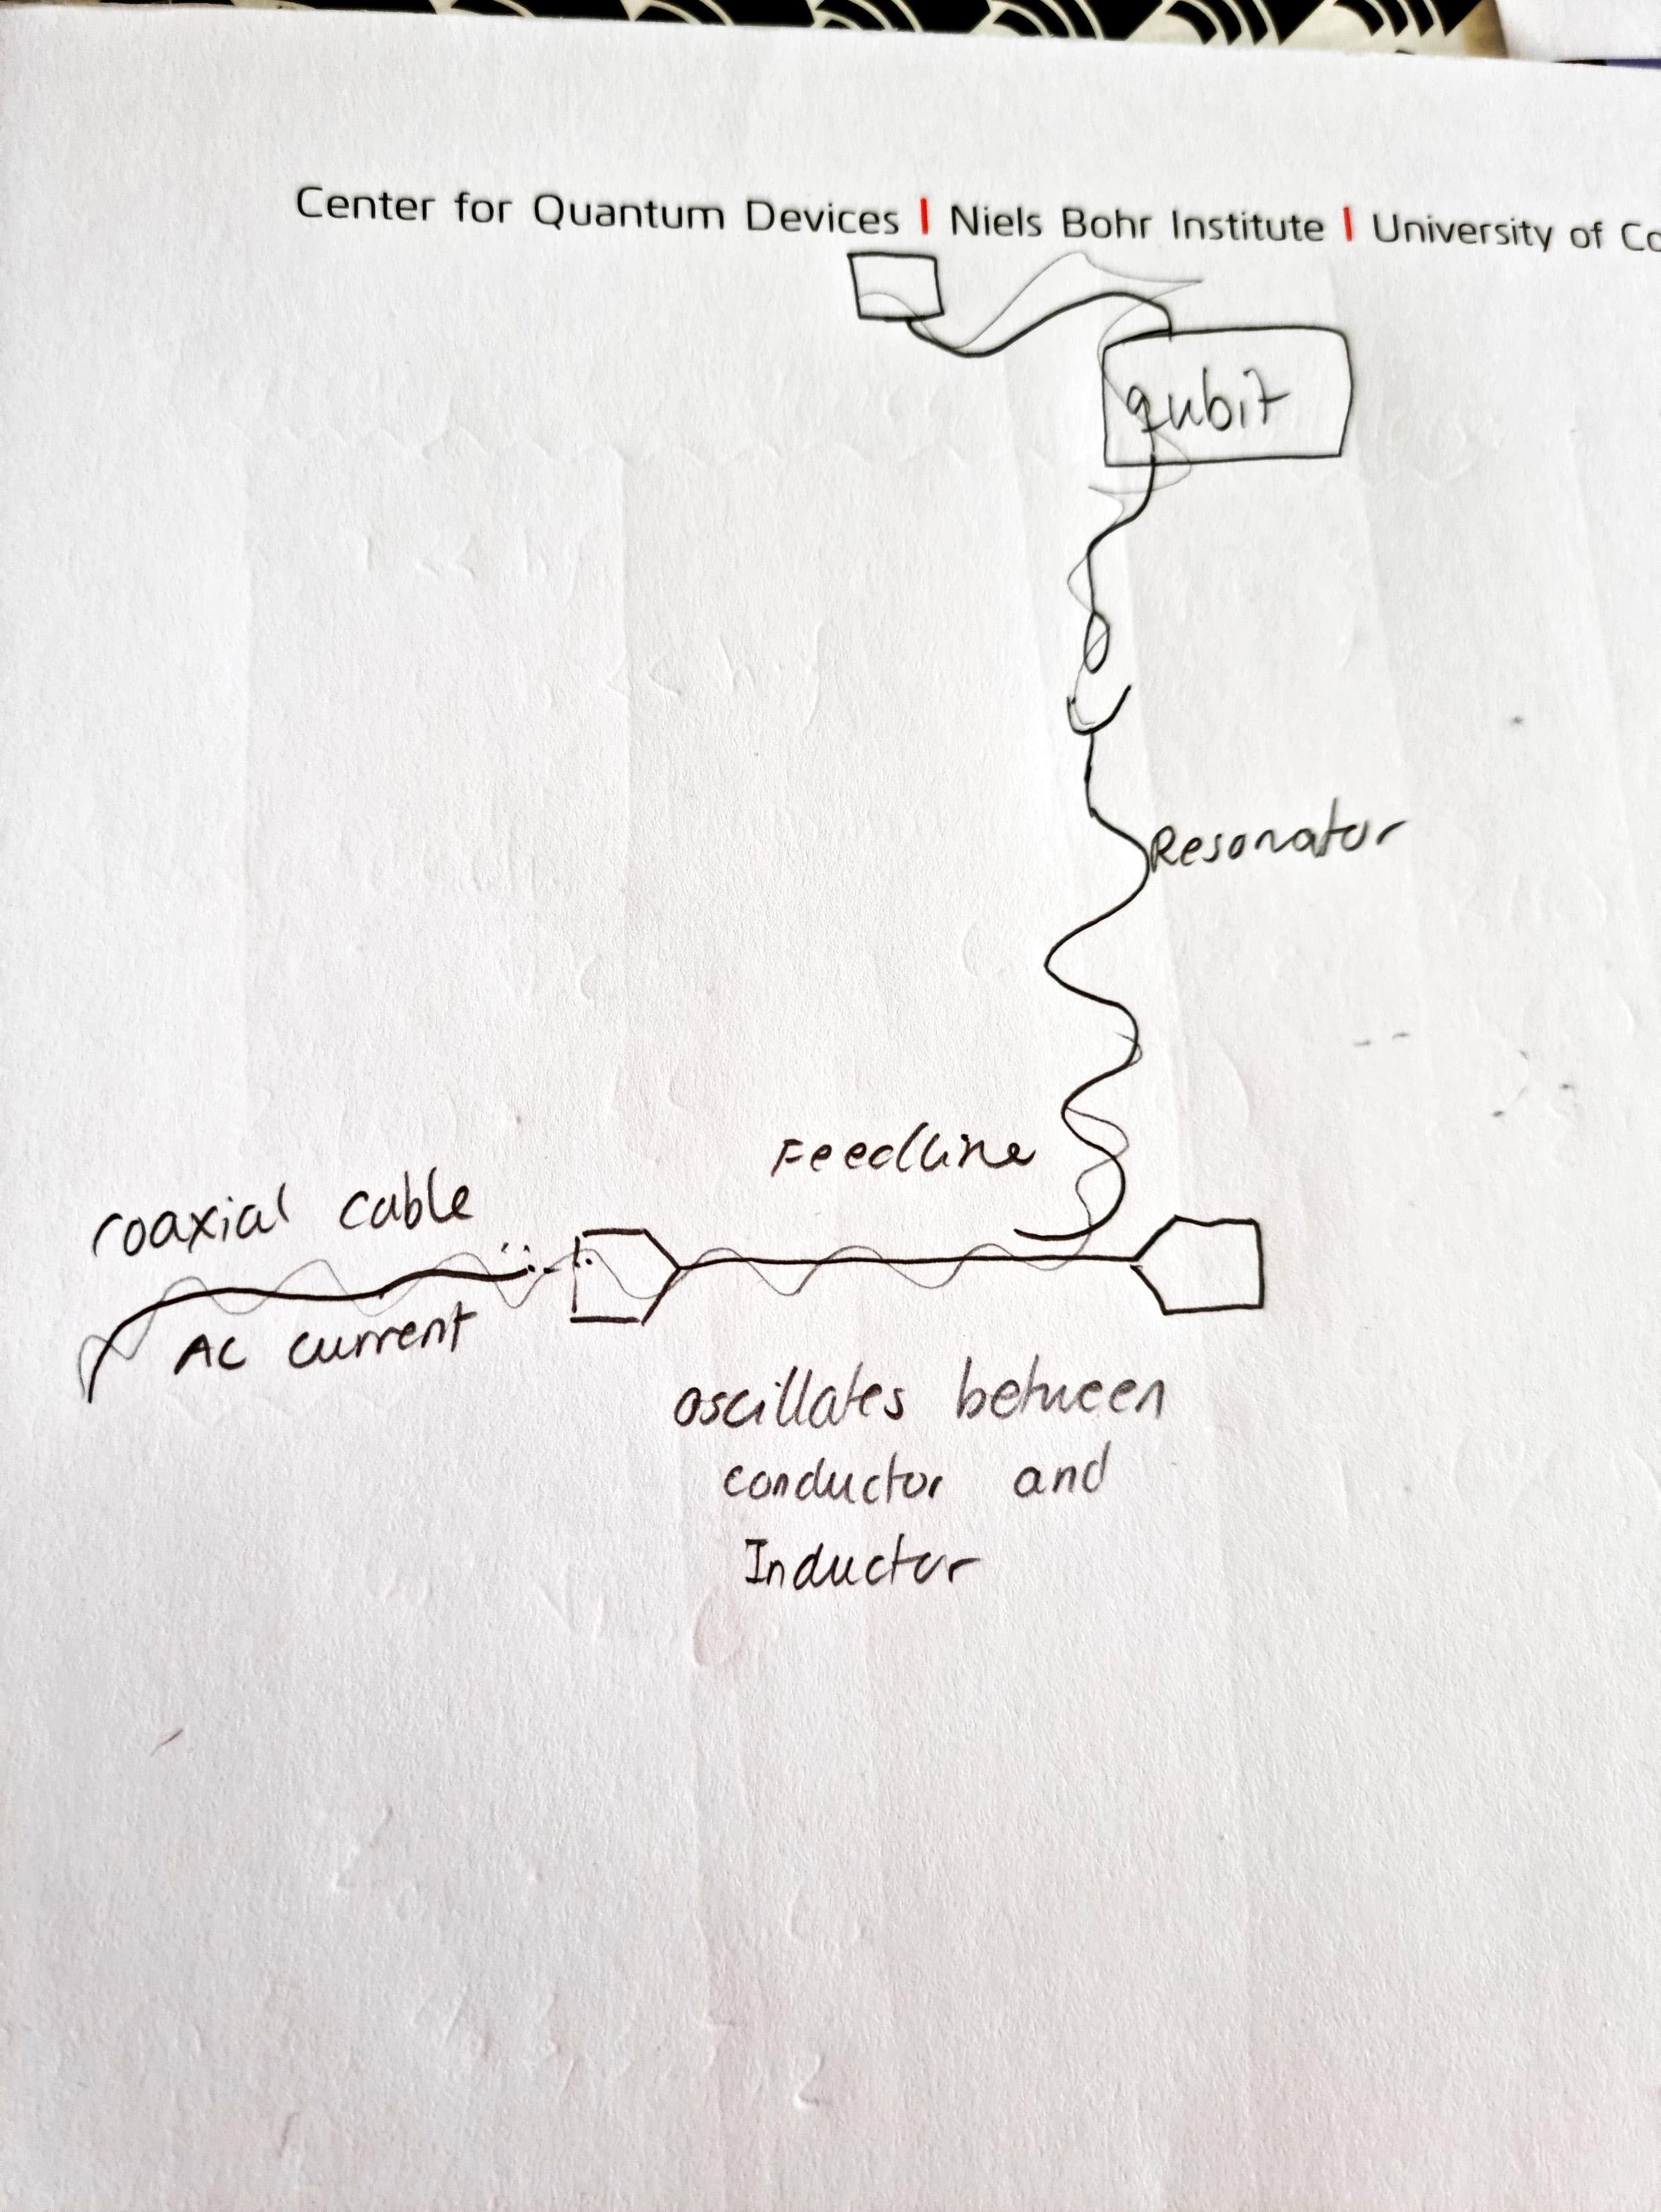 Center for Quantum Devices | Niels Bohr Institute | University of Co
qubit
Resonator
Feedline
coaxial cable
AC current
oscillates between
conductor and
Inductor